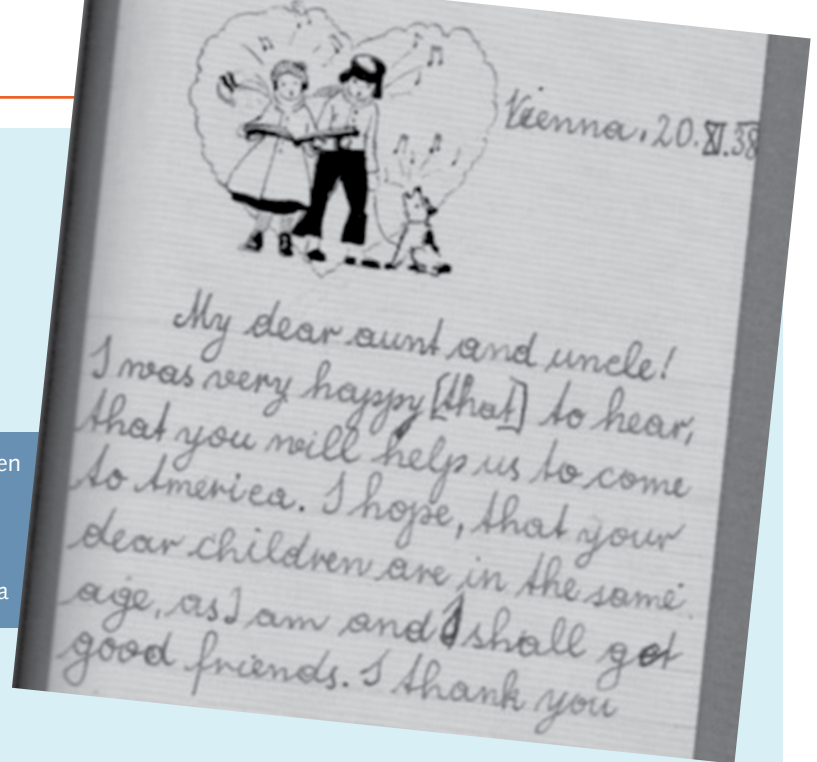 Vienna, 20.XI.38
My dear aunt and uncle!
I was very happy [that] to hear,
that you will help us to come
to America. I hope, that your
dear children are in the same
age, as I am and I shall get
good friends. I thank you
en
a